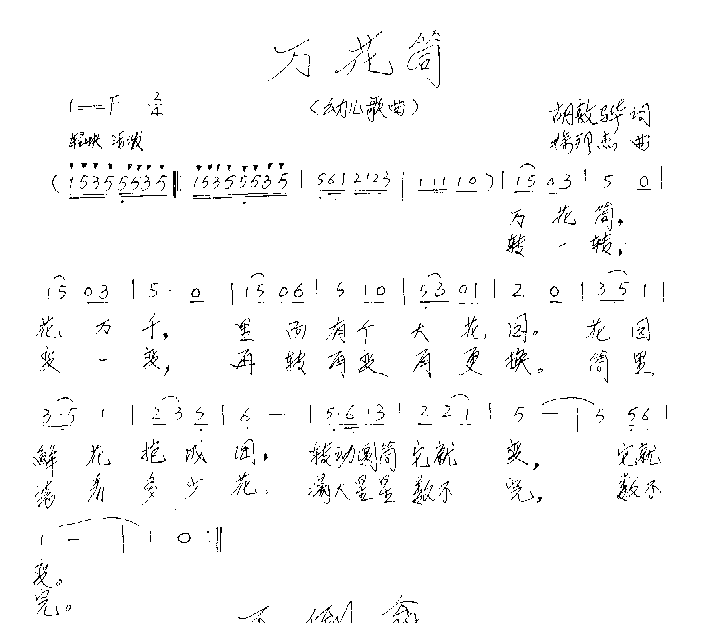 万花筒
1=F 2/4 (幼儿歌曲) 胡敦骅 词
轻快 活泼 杨理杰 曲
( 1535 5535 ‖: 1535 5535 | 561 2123 | 111 10 ) | 15 03 | 5 0 |
万花筒，
转一转，
15 03 | 5· 0 | 15 06 | 5 10 | 53 01 | 2 0 | 35 1 |
花万千，里面有个大花园。花园
变一变，再转再变再更换。筒里
3·5 1 | 23 5 | 6 — | 5·6 13 | 2 21 | 5 — | 5 561 |
鲜花抱成团，转动圆筒它就变，它就
看多少花，满天星星数不完，数不
1 — | 1 0 :‖
变。
完。
不倒翁